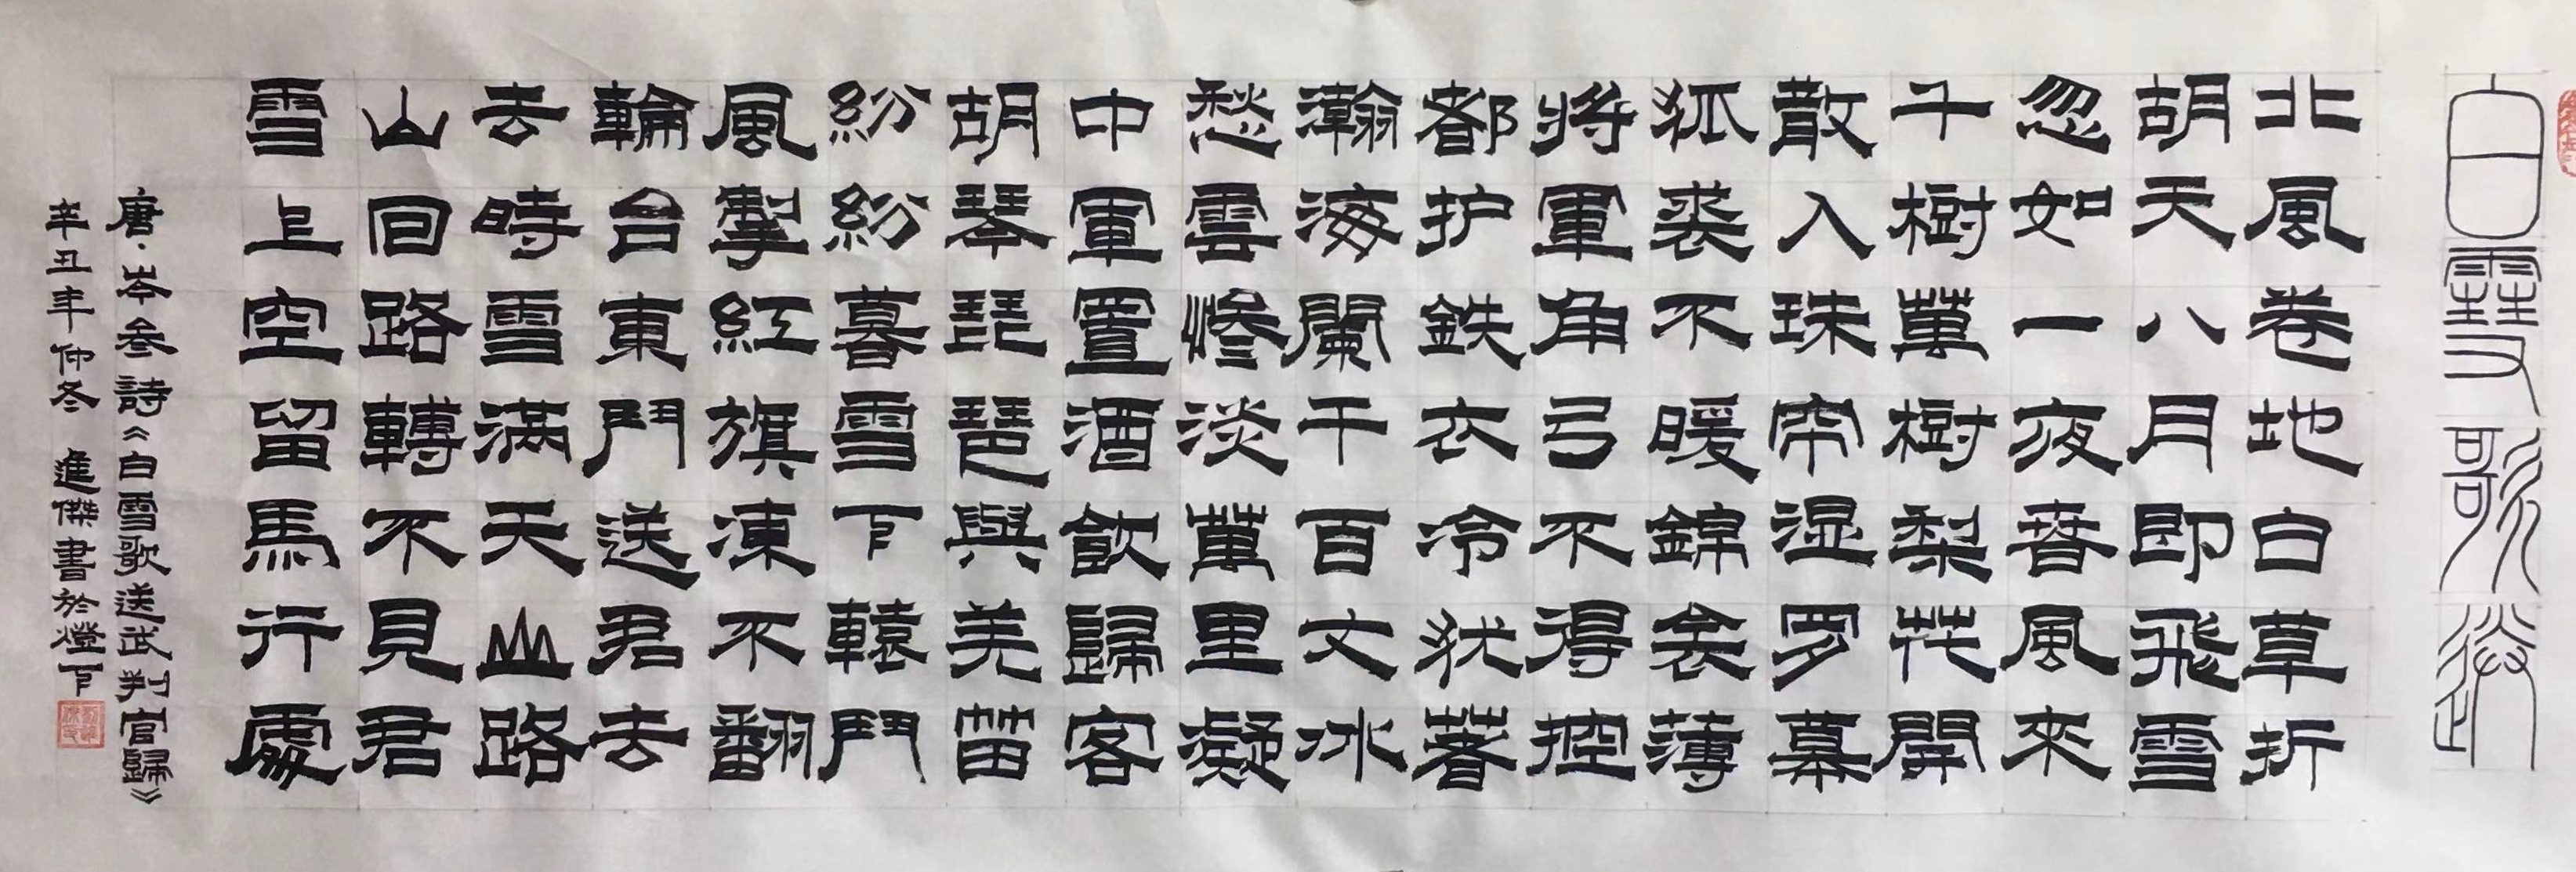 白雪歌送
北風卷地白草折
胡天八月即飛雪
忽如一夜春風來
千樹萬樹梨花開
散入珠帘湿罗幕
狐裘不暖錦衾薄
將軍角弓不得控
都护鉄衣冷犹著
瀚海闌干百丈冰
愁雲慘淡萬里凝
中軍置酒飲歸客
胡琴琵琶與羌笛
紛紛暮雪下轅門
風掣紅旗凍不翻
輪台東門送君去
去時雪滿天山路
山回路轉不見君
雪上空留馬行處
唐·岑參詩《白雪歌送武判官歸》
辛丑年仲冬 進傑書於燈下